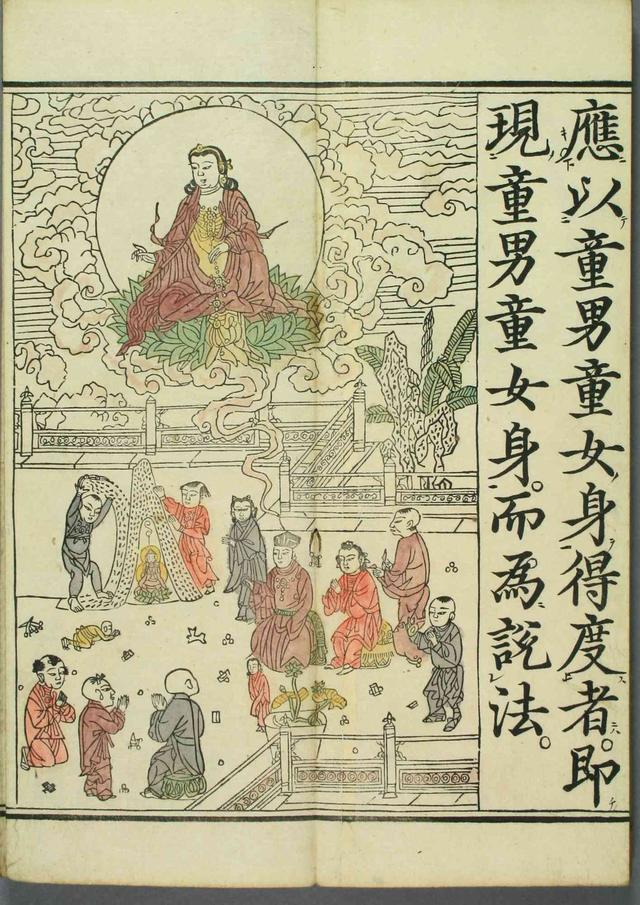 應以童男童女身得度者。即
現童男童女身。而為說法。